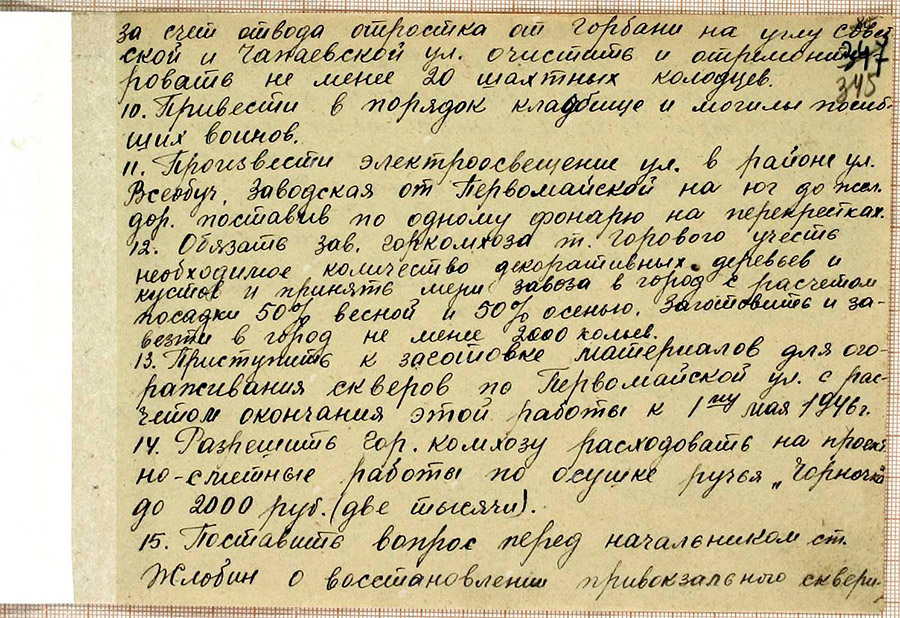 за счет отвода отростка от горбани на углу Совет
347
ской и Чапаевской ул. очистить и отремонти-
345
ровать не менее 20 шахтных колодцев.
10. Привести в порядок кладбище и могилы погиб-
ших воинов.
11. Произвести электроосвещение ул. в районе ул.
Всеобуч, Заводская от Первомайской на юг до жел.
дор. поставив по одному фонарю на перекрестках.
12. Обязать зав. горкомхоза т. Горового учесть
необходимое количество декоративных деревьев и
кустов и принять меры завоза в город с расчетом
посадки 50% весной и 50% осенью. Заготовить и за-
везти в город не менее 2000 кольев.
13. Приступить к заготовке материалов для ого-
раживания скверов по Первомайской ул. с рас-
четом окончания этой работы к 1му мая 1946 г.
14. Разрешить Гор. комхозу расходовать на проект
но-сметные работы по осушке ручья „Чорночка
до 2000 руб. (две тысячи).
15. Поставить вопрос перед начальником ст.
Жлобин о восстановлении привокзального сквера,